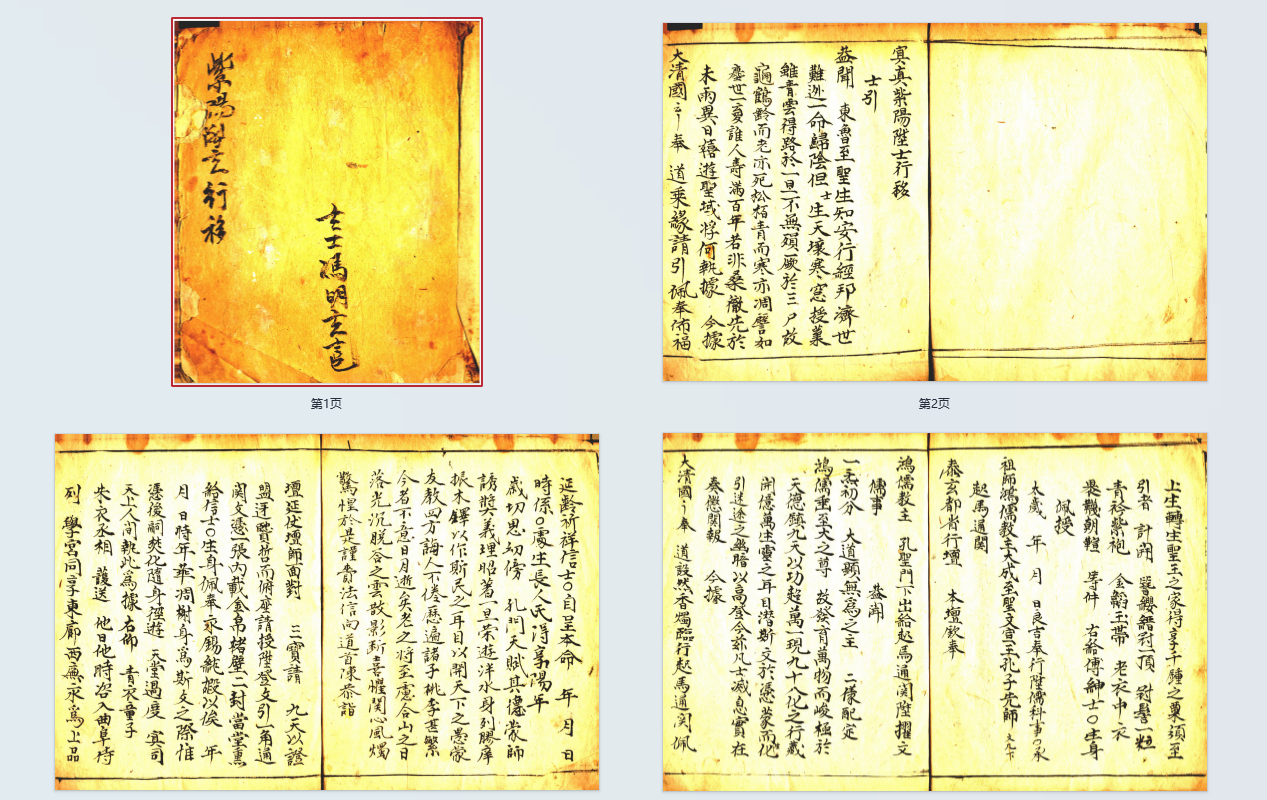 士馮明玄
紫陽陞士行移
第1页
冥真紫陽陞士行移
士引
蓋聞 東魯至聖生知安行經邦濟世
難逃一命歸陰但士生天壤寒窓授業
雖青雲得路於一旦不無殞厥於三尸故
龜鶴齡而老亦死松栢青而寒亦凋譬如
塵世一夏誰人壽滿百年若非桑徹先於
未雨異日禧遊聖域將何執據 今據
大清國 奉 道乘緣請引佩奉佈福
第2页
延齡祈祥信士○自呈本命 年 月 日
時係○處生長人氏淂享陽年
歲切思切傍 孔門天賦其德蒙師
誘奬義理昭著一旦榮遊泮水身列膠庠
振木鐸以作斯民之耳目以開天下之愚蒙
友教四方誨人不倦歷遍諸子桃李甚繁
今名不意日月逝矣老之將至慮合山之日
落光沉脫谷之雲散影斯喜懼関心風燭
驚惶於是謹賫法信向道首陳恭詣
壇延使壇師面對 三寶請 九天以證
盟迓賢哲而俯座請授陞登文引一角通
関文憑一張內載金帛楮壁二封當堂熏
給信士○生身佩奉永錫純嘏以俟 年
月 日時年華凋榭身為斯文之際惟
憑後嗣焚化隨身徑遊 天堂過度 冥司
天上人間執此為據右仰 青衣童子
朱衣丞相 護送 他日他時咨入曲阜特
列 學宮同享東廊西廡永為上品
上生轉生聖王之家持享千鍾之粟須至
引者 計開 簪纓緇冠一頂 冠髻一粒
青衿紫袍 金縚玉帶 老衣中衣
裳韈朝鞾 等件 右給傳紳士○生身
佩授
太歲 年 月 日良吉奉行陞儒科事○承
祖師鴻儒教主大成至聖文宣王孔子先師
起馬通関
泰玄都省行壇 本壇欽奉
鴻儒教主 孔聖門下出給起馬通関陞擢文
儒事 葢聞
一炁初分 大道顯無為之主 二儀配定
鴻儒重至大之尊 故發育萬物而峻極於
天德鎮九天以功超萬一現九十八化之行藏
開億萬生靈之耳目潜斯文於張蒙而化
引迷途之幽暗以高登今茲凡士滅息實在
奏懇関報 今據
大清國 奉 道設然香燭臨行起馬通関佩